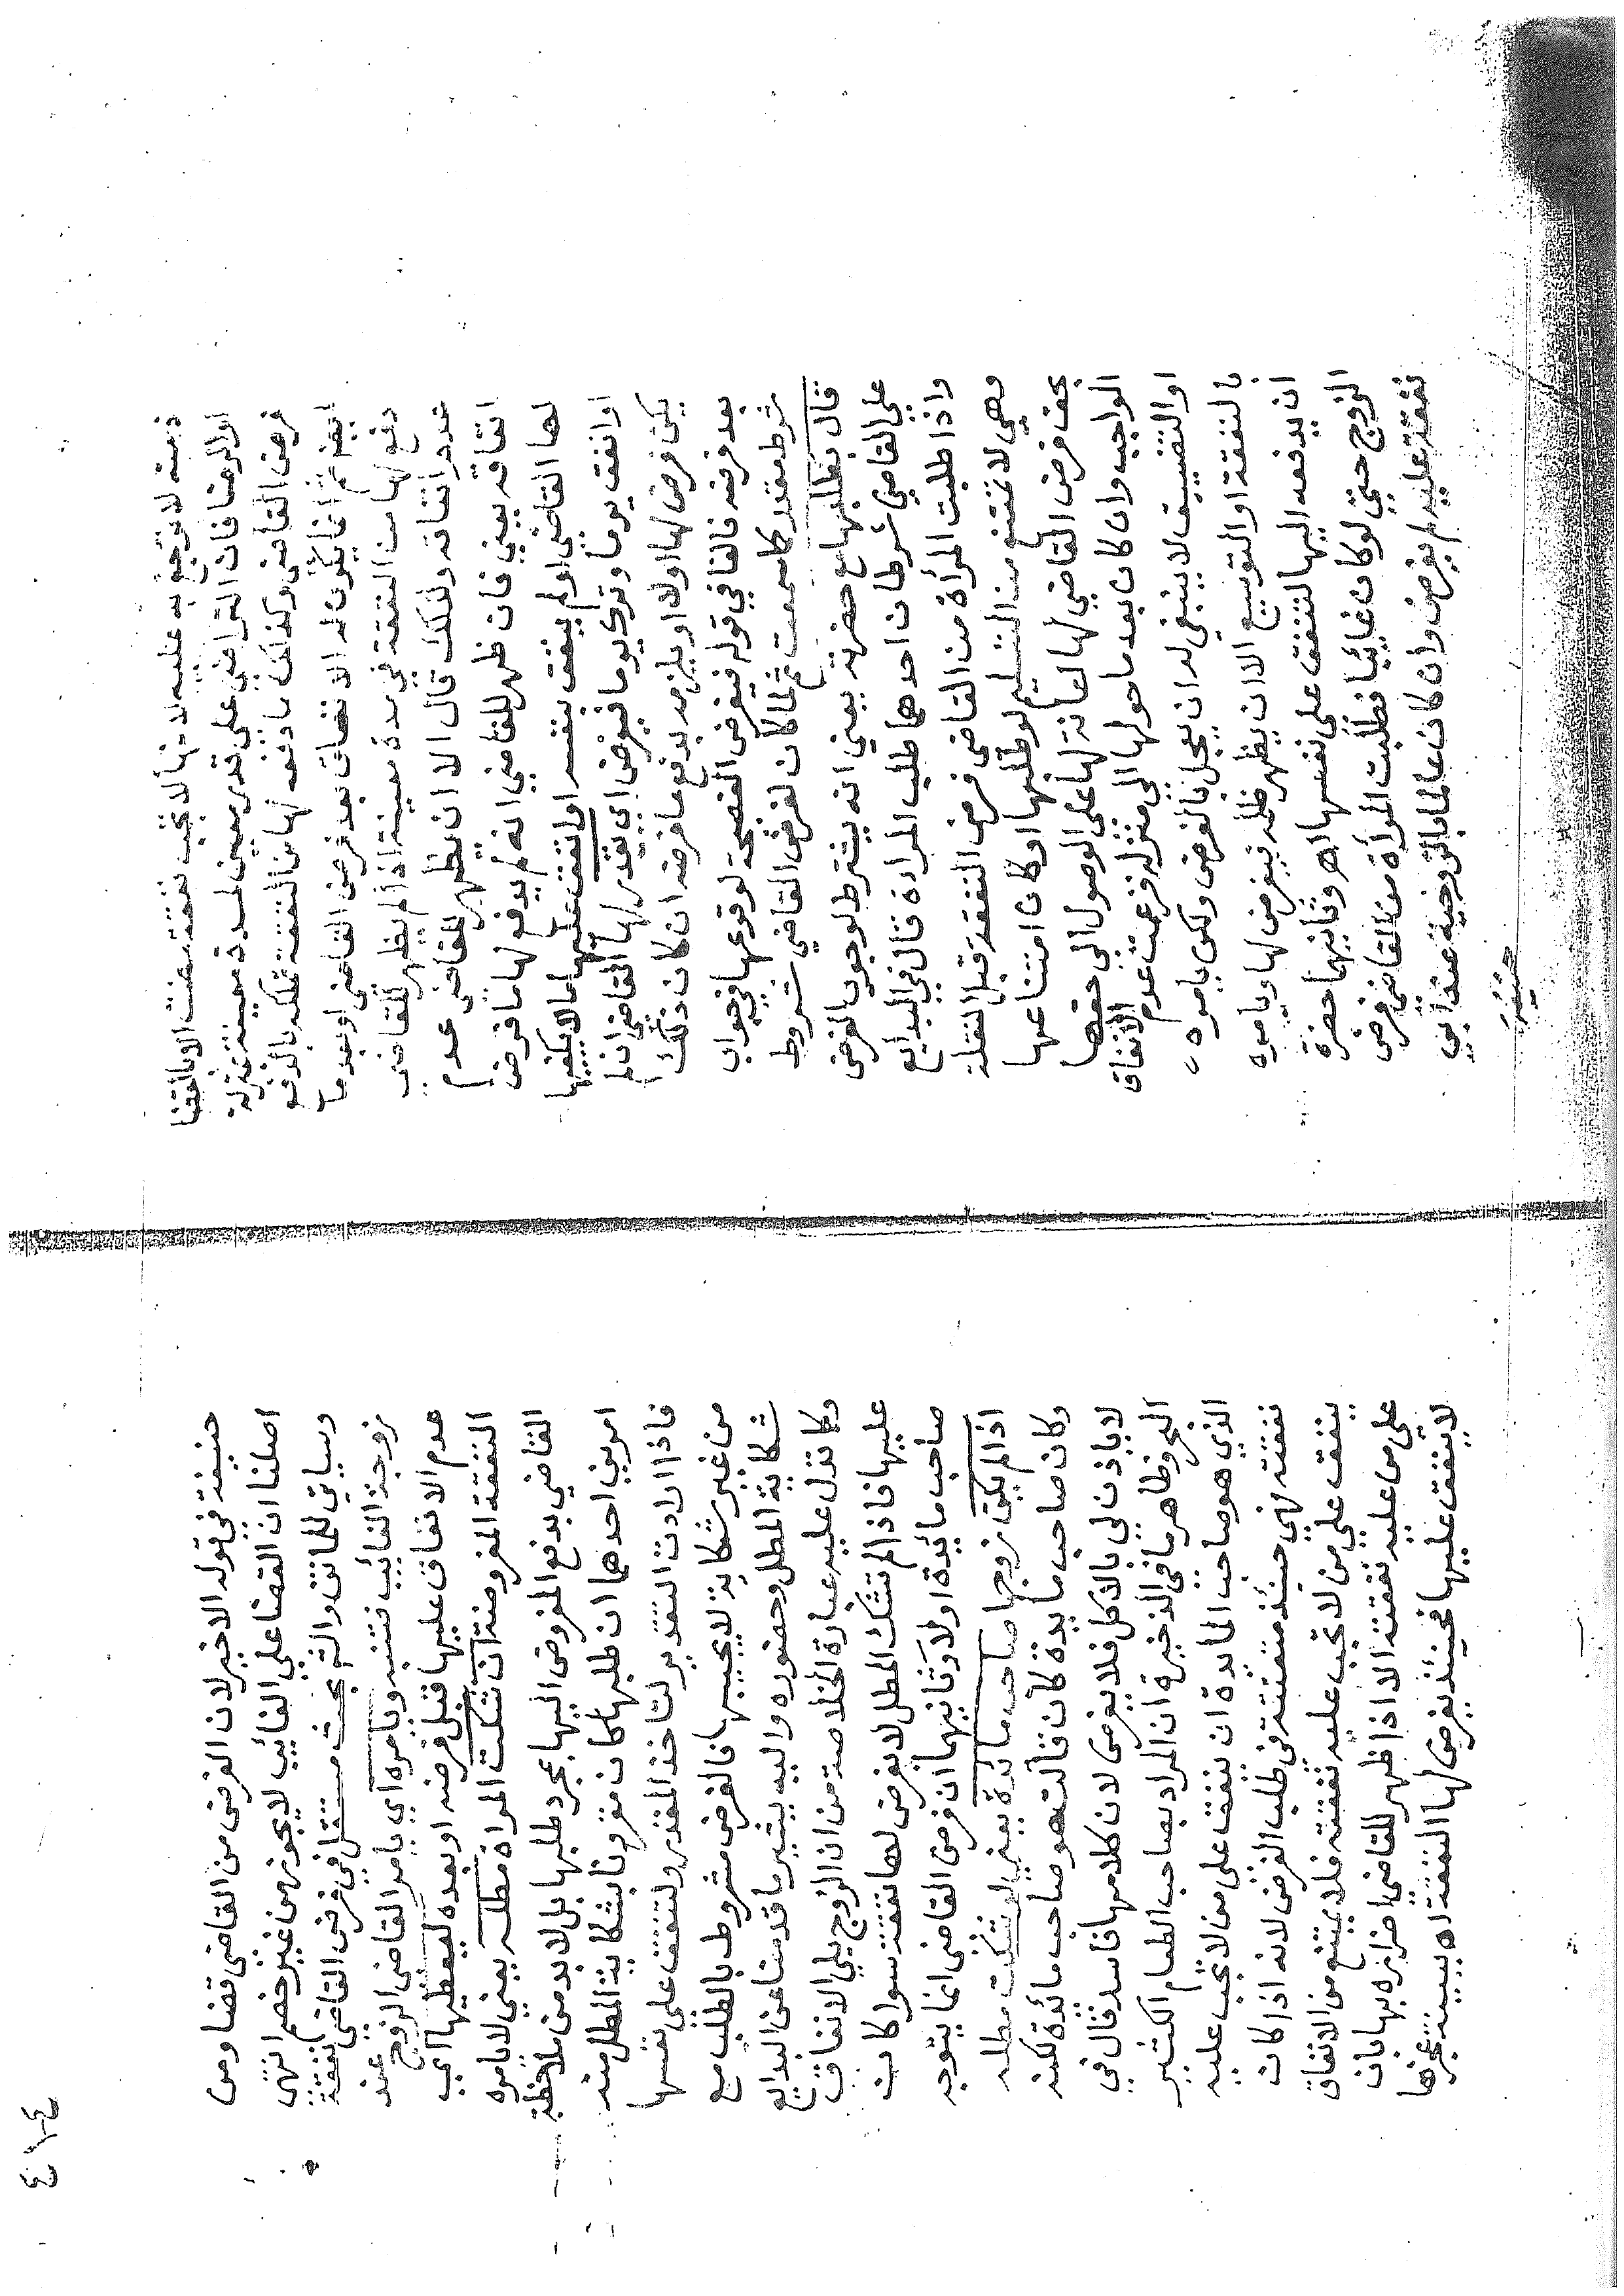 ذمته لا ترجع به عليه لانها لا تجب نفقته الا بالقضا
او الرضا فان التراضي على قدر معين لمدة معينة بمنزلة
فرض القاضي وكذلك ما دفعه لها من النفقة تملكه بالدفع
ثم انما يكون له الانفاق بعد فرض القاضي او بعدما
دفع لها من النفقة في مدة معينة اذا لم يظهر للقاضي
عدم انفاقه ولذلك قال الا ان يظهر للقاضي عدم
انفاقه يعني فان ظهر للقاضي انه لم يدفع لها ما فرض
لها القاضي او لم ينفق بنفسه او انفق عليها ما لا يكفيها
او انفق يوما وترك يوما فيفرض اي يقدر لها القاضي ان لم
يكن فرض لها اولا او يلزمه بدفع ما فرضه ان كان ذلك
بعد فرضه فالفا في قوله فيفرض الفصحة لوقوعها في جواب
شرط مقدر كما سمعت ثم لما كان لفرض القاضي شروط
قال بطلبها مع حضرته يعني انه يشترط لوجوب الفرض
على القاضي شرطان احدهما طلب المراة قال في البدايع
واذا طلبت المرأة من القاضي فرض النفقة قبل النقلة
وهي لا تمتنع من التسليم لو طلبها او كان امتناعها
بحق فرض القاضي لها اعانة لها على الوصول الى حقها
الواجب وان كان بعد ما حولها الى منزله فزعمت عدم الانفاق
او التضييق لا ينبغي له ان يعجل بالفرض ولكن يامره
بالنفقة والتوسيع الا ان يظهر ظلمه فيفرض لها ويامره
ان يدفعه اليها لتنفق على نفسها اهـ وثانيهما حضرة
الزوج حتى لو كان غايبا فطلبت المرأة من القاضي فرض
نفقة عليه لم يفرض وان كان عالما بالزوجية عند ابي
حنيفة
٤١٤
حنيفة في قوله الاخير لان الفرض من القاضي قضا ومن
اصلنا ان القضا على الغائب لا يجوز من غير خصم انتهى
وسياتي للماتن والشـ بحث مستقل في فرض القاضي نفقة
زوجة الغائب فتنبه ويامره اي يامر القاضي الزوج عند
عدم الانفاق عليها قبل فرضه او بعده ليعطيها اي
النفقة المفروضة ان شكت المراة مطله يعني لا يامره
القاضي بدفع المفروض اليها بمجرد طلبها بل لا بد من ملاحظة
امرين احدهما ان طلبها كان مقرونا بشكاية المطل منه
فاذا ارادت التقدير لتاخذ المقدر ولتنفق على نفسها
من غير شكاية لا يجيبها فالفرض مشروط بالطلب مع
شكاية المطل وحضوره واليه يشير ما قدمنا عن البدايع
وكما تدل عليه عبارة الخلاصة من ان الزوج يلي الانفاق
عليها فاذا لم تشك المطل لا يفرض لها نفقة سوا كان
صاحب مائدة اولا وثانيهما ان فرض القاضي انما يتوجه
اذا لم يكن زوجها صاحب مائدة يعني لو شكت مطله
وكان صاحب مايدة كان قالت هو صاحب مائدة لكنه
لا ياذن لي بالاكل فلا يفرض لان كلامها فاسد قال في
البحر وظاهر ما في الذخيرة ان المراد بصاحب الطعام الكثير
الذي هو صاحب المايدة ان ينفق على من لا تجب عليه
نفقته فهي حينئذ متعنتة في طلب الفرض لانه اذا كان
ينفق على من لا تجب عليه نفقته فلا يمتنع من الانفاق
على من عليه نفقته الا اذا ظهر للقاضي اضراره بها بان
لا ينفق عليها فحينئذ يفرض لها النفقة اهـ ببينة عجزها